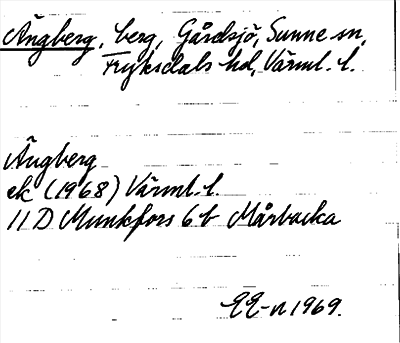 Ängberg, berg, Gårdsjö, Sunne sn,
Fryksdals hd, Värml. l.
Ängberg
ek (1968) Värml. l.
11 D Munkfors 6b Mårbacka
EE-n 1969.